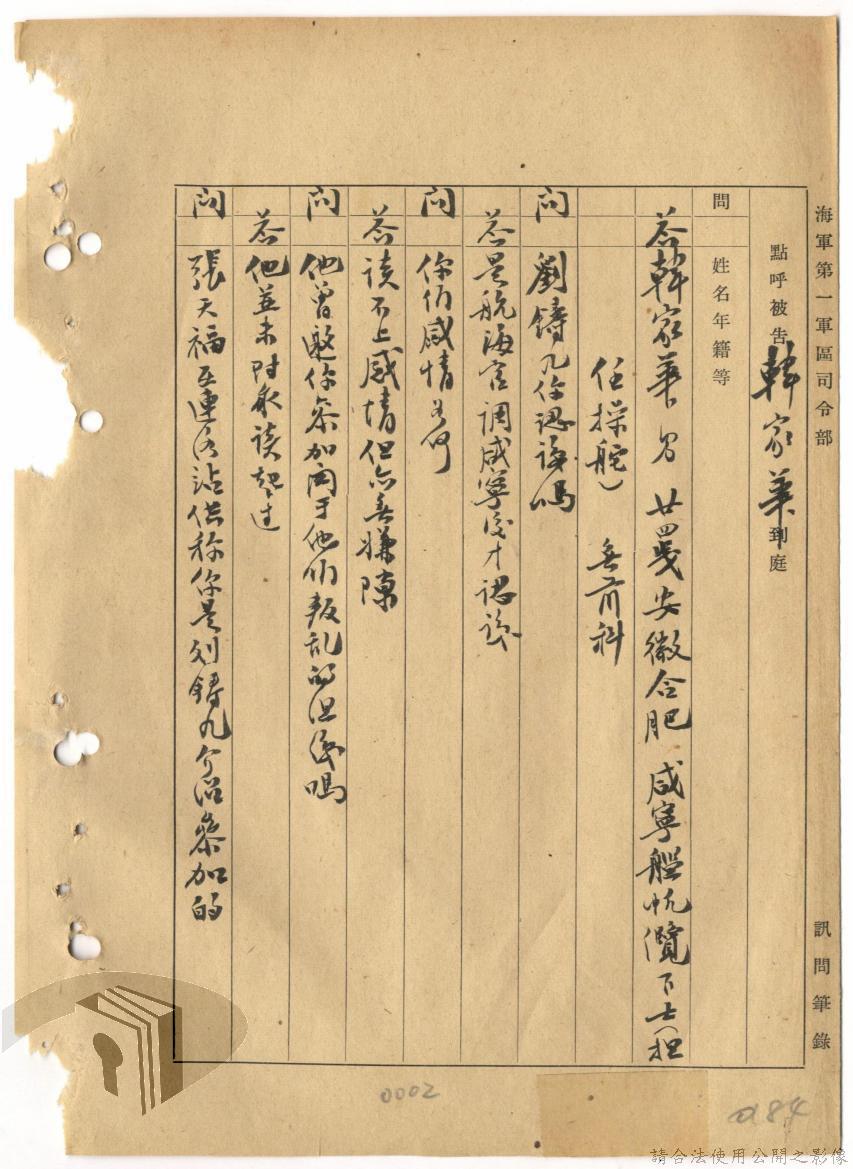 海軍第一軍區司令部 訊問筆錄
點呼被告韓家華到庭
問 姓名年籍等
答 韓家華 男 廿四歲 安徽合肥 咸寧艦帆纜下士（担
任操舵） 無前科
問 劉鑄九你認識嗎
答 是航海官調咸寧後才認識
問 你们感情如何
答 谈不上感情但亦無嫌隙
問 他曾邀你參加関于他们叛乱的组织嗎
答 他並未对我谈起过
問 張天福 供称你是刘鑄九介绍參加的
0002
084
請合法使用公開之影像